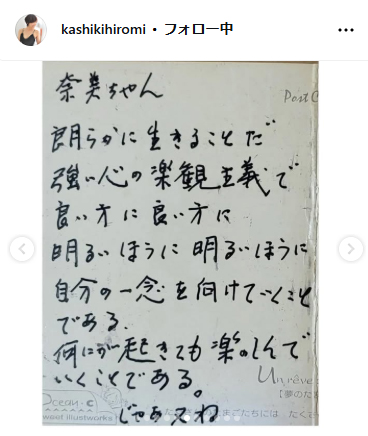 kashikihiromi • フォロー中
奈美ちゃん
Post C
朗らかに生きることだ
強い心の楽観主義で
良い方に良い方に
明るいほうに明るいほうに
自分の一念を向けていくこと
である。
何にが起きても楽しんで
いくことである。
Un rêve
【夢のた
Ocean・C
sweet illustworks
たまごたちには・たくさ
じゃあえね